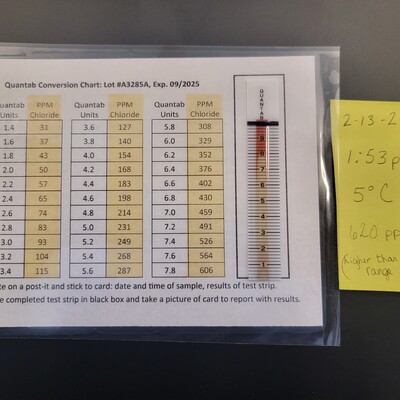 Quantab Conversion Chart: Lot #A3285A, Exp. 09/2025
Quantab PPM Quantab PPM Quantab PPM
Units Chloride Units Chloride Units Chloride
1.4 31 3.6 127 5.8 308
1.6 37 3.8 140 6.0 329
1.8 43 4.0 154 6.2 352
2.0 50 4.2 168 6.4 376
2.2 57 4.4 183 6.6 402
2.4 65 4.6 198 6.8 430
2.6 74 4.8 214 7.0 459
2.8 83 5.0 231 7.2 491
3.0 93 5.2 249 7.4 526
3.2 104 5.4 268 7.6 564
3.4 115 5.6 287 7.8 606
te on a post-it and stick to card: date and time of sample, results of test strip.
e completed test strip in black box and take a picture of card to report with results.
QUANTAB
9
8
7
6
5
4
3
2
1
2-13-2
1:53 p
5°C
620 pp
(higher than
range